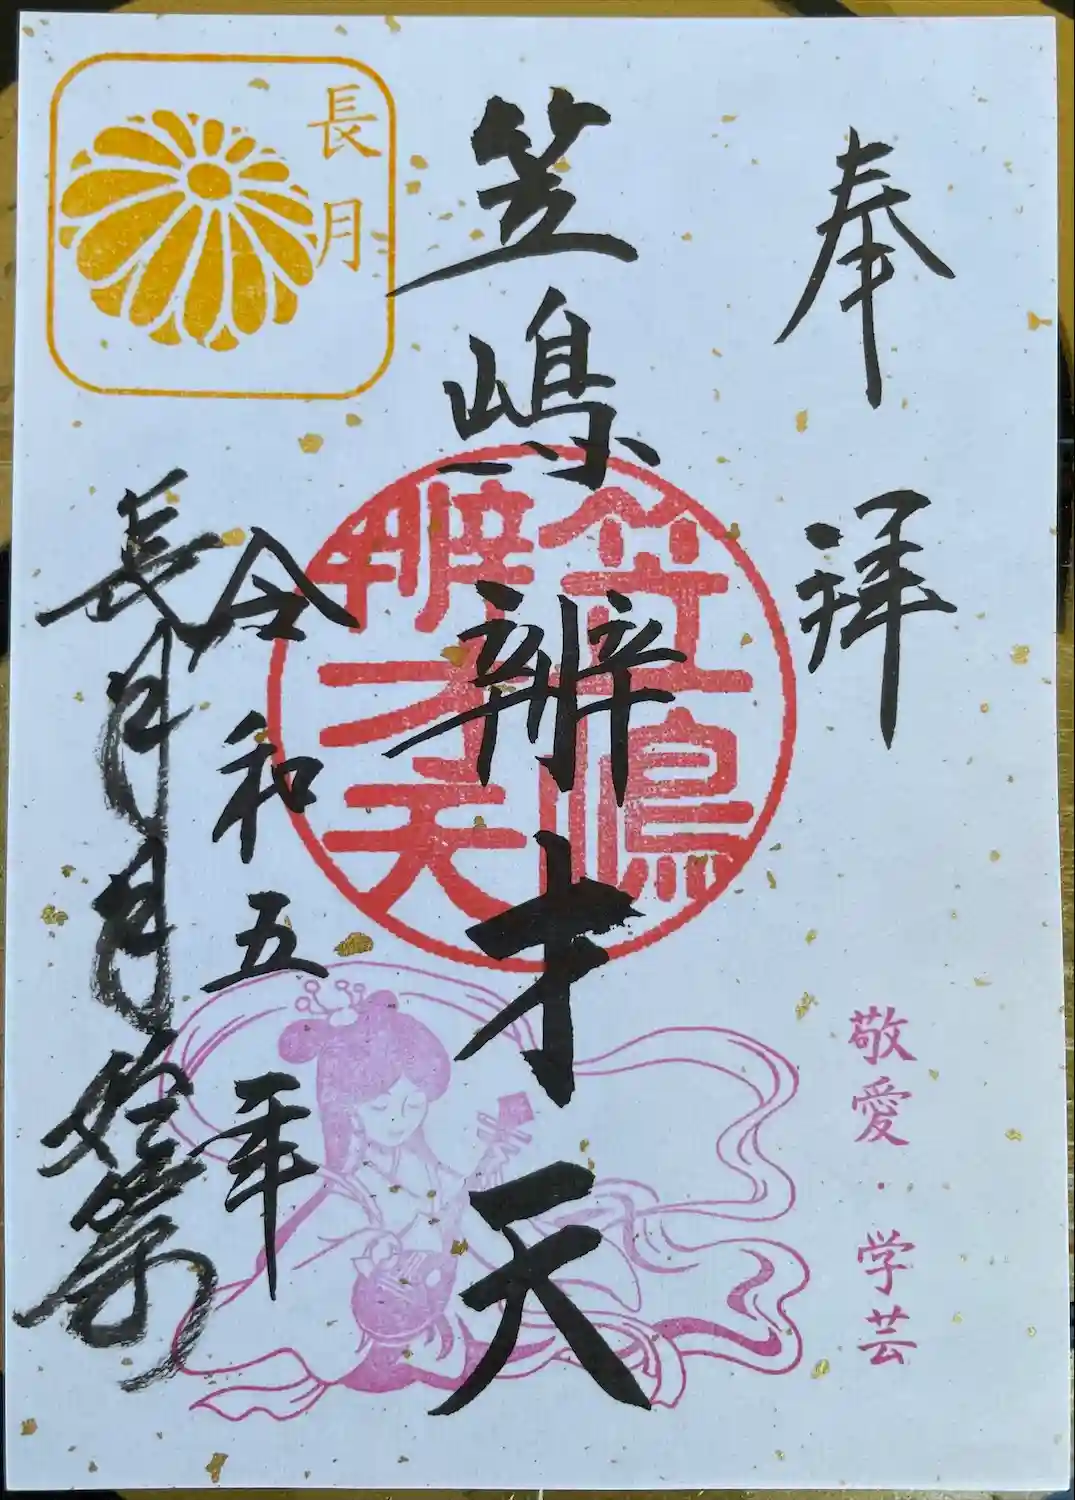 奉拝
笠嶋辨才天
笠嶋
辨才天
敬愛・学芸
長月
令和五年
長月月始祭